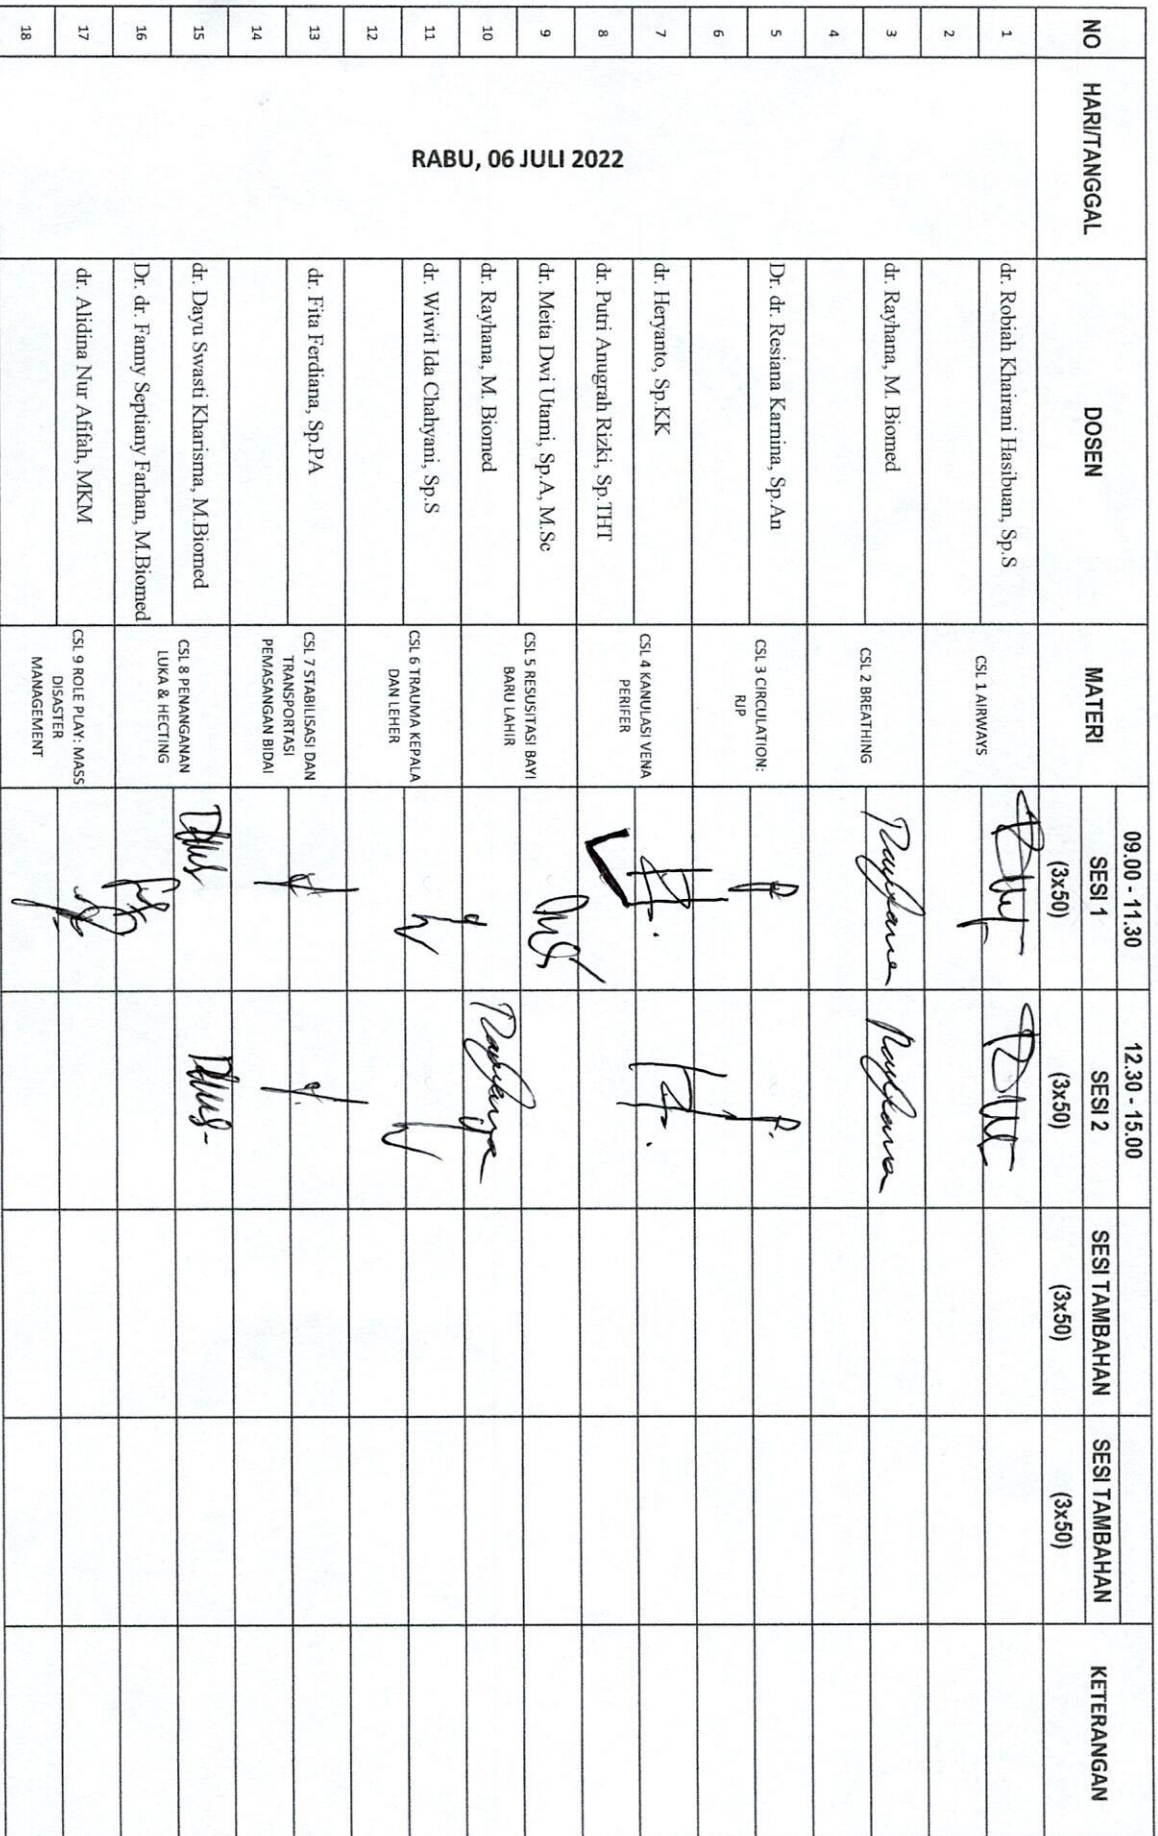 09.00 - 11.30
12.30 - 15.00
NO
HARI/TANGGAL
DOSEN
MATERI
SESI 1
SESI 2
SESI TAMBAHAN
SESI TAMBAHAN
KETERANGAN
(3x50)
(3x50)
(3x50)
(3x50)
RABU, 06 JULI 2022
1
dr. Robiah Khairani Hasibuan, Sp.S
CSL 1 AIRWAYS
2
3
dr. Rayhana, M. Biomed
CSL 2 BREATHING
Rayhana
Rayhana
4
5
Dr. dr. Resiana Karnina, Sp.An
CSL 3 CIRCULATION:
RJP
6
7
dr. Heryanto, Sp.KK
CSL 4 KANULASI VENA
PERIFER
8
dr. Putri Anugrah Rizki, Sp.THT
9
dr. Meita Dwi Utami, Sp.A, M.Sc
CSL 5 RESUSITASI BAYI
BARU LAHIR
10
dr. Rayhana, M. Biomed
Rayhana
11
dr. Wiwit Ida Chahyani, Sp.S
CSL 6 TRAUMA KEPALA
DAN LEHER
12
13
dr. Fita Ferdiana, Sp.PA
CSL 7 STABILISASI DAN
TRANSPORTASI
PEMASANGAN BIDAI
14
15
dr. Dayu Swasti Kharisma, M.Biomed
CSL 8 PENANGANAN
LUKA & HECTING
16
Dr. dr. Fanny Septiany Farhan, M.Biomed
17
dr. Alidina Nur Afifah, MKM
CSL 9 ROLE PLAY: MASS
DISASTER
MANAGEMENT
18